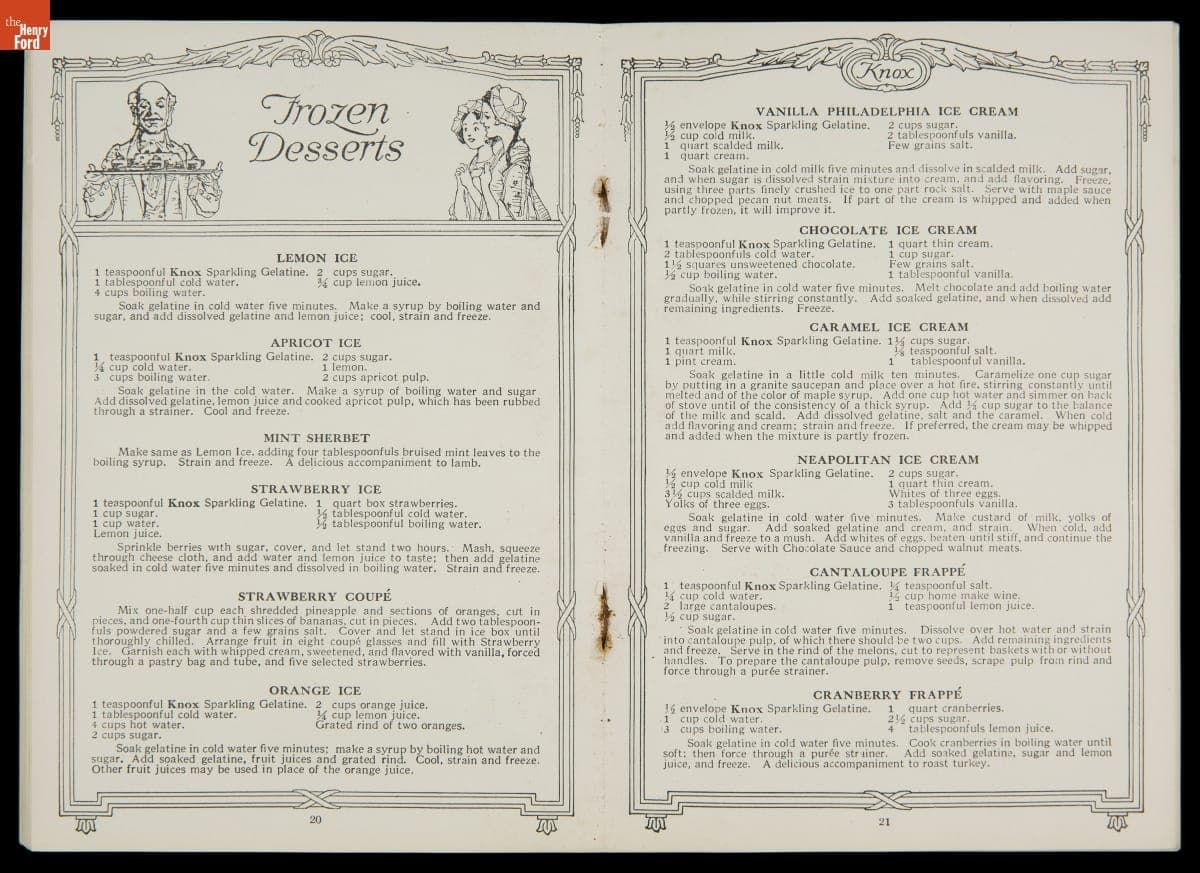 the
Henry
Ford
Frozen
Desserts
LEMON ICE
1 teaspoonful Knox Sparkling Gelatine. 2 cups sugar.
1 tablespoonful cold water. ¾ cup lemon juice.
4 cups boiling water.
Soak gelatine in cold water five minutes. Make a syrup by boiling water and
sugar, and add dissolved gelatine and lemon juice; cool, strain and freeze.
APRICOT ICE
1 teaspoonful Knox Sparkling Gelatine. 2 cups sugar.
¼ cup cold water. 1 lemon.
3 cups boiling water. 2 cups apricot pulp.
Soak gelatine in the cold water. Make a syrup of boiling water and sugar
Add dissolved gelatine, lemon juice and cooked apricot pulp, which has been rubbed
through a strainer. Cool and freeze.
MINT SHERBET
Make same as Lemon Ice, adding four tablespoonfuls bruised mint leaves to the
boiling syrup. Strain and freeze. A delicious accompaniment to lamb.
STRAWBERRY ICE
1 teaspoonful Knox Sparkling Gelatine. 1 quart box strawberries.
1 cup sugar. ½ tablespoonful cold water.
1 cup water. ½ tablespoonful boiling water.
Lemon juice.
Sprinkle berries with sugar, cover, and let stand two hours. Mash, squeeze
through cheese cloth, and add water and lemon juice to taste; then add gelatine
soaked in cold water five minutes and dissolved in boiling water. Strain and freeze.
STRAWBERRY COUPÉ
Mix one-half cup each shredded pineapple and sections of oranges, cut in
pieces, and one-fourth cup thin slices of bananas, cut in pieces. Add two tablespoon-
fuls powdered sugar and a few grains salt. Cover and let stand in ice box until
thoroughly chilled. Arrange fruit in eight coupé glasses and fill with Strawberry
Ice. Garnish each with whipped cream, sweetened, and flavored with vanilla, forced
through a pastry bag and tube, and five selected strawberries.
ORANGE ICE
1 teaspoonful Knox Sparkling Gelatine. 2 cups orange juice.
1 tablespoonful cold water. ¼ cup lemon juice.
4 cups hot water. Grated rind of two oranges.
2 cups sugar.
Soak gelatine in cold water five minutes; make a syrup by boiling hot water and
sugar. Add soaked gelatine, fruit juices and grated rind. Cool, strain and freeze.
Other fruit juices may be used in place of the orange juice.
20
Knox
VANILLA PHILADELPHIA ICE CREAM
½ envelope Knox Sparkling Gelatine. 2 cups sugar.
½ cup cold milk. 2 tablespoonfuls vanilla.
1 quart scalded milk. Few grains salt.
1 quart cream.
Soak gelatine in cold milk five minutes and dissolve in scalded milk. Add sugar,
and when sugar is dissolved strain mixture into cream, and add flavoring. Freeze,
using three parts finely crushed ice to one part rock salt. Serve with maple sauce
and chopped pecan nut meats. If part of the cream is whipped and added when
partly frozen, it will improve it.
CHOCOLATE ICE CREAM
1 teaspoonful Knox Sparkling Gelatine. 1 quart thin cream.
2 tablespoonfuls cold water. 1 cup sugar.
1½ squares unsweetened chocolate. Few grains salt.
½ cup boiling water. 1 tablespoonful vanilla.
Soak gelatine in cold water five minutes. Melt chocolate and add boiling water
gradually, while stirring constantly. Add soaked gelatine, and when dissolved add
remaining ingredients. Freeze.
CARAMEL ICE CREAM
1 teaspoonful Knox Sparkling Gelatine. 1½ cups sugar.
1 quart milk. ⅛ teaspoonful salt.
1 pint cream. 1 tablespoonful vanilla.
Soak gelatine in a little cold milk ten minutes. Caramelize one cup sugar
by putting in a granite saucepan and place over a hot fire, stirring constantly until
melted and of the color of maple syrup. Add one cup hot water and simmer on back
of stove until of the consistency of a thick syrup. Add ½ cup sugar to the balance
of the milk and scald. Add dissolved gelatine, salt and the caramel. When cold
add flavoring and cream; strain and freeze. If preferred, the cream may be whipped
and added when the mixture is partly frozen.
NEAPOLITAN ICE CREAM
½ envelope Knox Sparkling Gelatine. 2 cups sugar.
½ cup cold milk 1 quart thin cream.
3½ cups scalded milk. Whites of three eggs.
Yolks of three eggs. 3 tablespoonfuls vanilla.
Soak gelatine in cold water five minutes. Make custard of milk, yolks of
eggs and sugar. Add soaked gelatine and cream, and strain. When cold, add
vanilla and freeze to a mush. Add whites of eggs, beaten until stiff, and continue the
freezing. Serve with Chocolate Sauce and chopped walnut meats.
CANTALOUPE FRAPPÉ
1 teaspoonful Knox Sparkling Gelatine. ¼ teaspoonful salt.
¼ cup cold water. ½ cup home make wine.
2 large cantaloupes. 1 teaspoonful lemon juice.
½ cup sugar.
Soak gelatine in cold water five minutes. Dissolve over hot water and strain
into cantaloupe pulp, of which there should be two cups. Add remaining ingredients
and freeze. Serve in the rind of the melons, cut to represent baskets with or without
handles. To prepare the cantaloupe pulp, remove seeds, scrape pulp from rind and
force through a purée strainer.
CRANBERRY FRAPPÉ
½ envelope Knox Sparkling Gelatine. 1 quart cranberries.
1 cup cold water. 2½ cups sugar.
3 cups boiling water. 4 tablespoonfuls lemon juice.
Soak gelatine in cold water five minutes. Cook cranberries in boiling water until
soft; then force through a purée strainer. Add soaked gelatine, sugar and lemon
juice, and freeze. A delicious accompaniment to roast turkey.
21